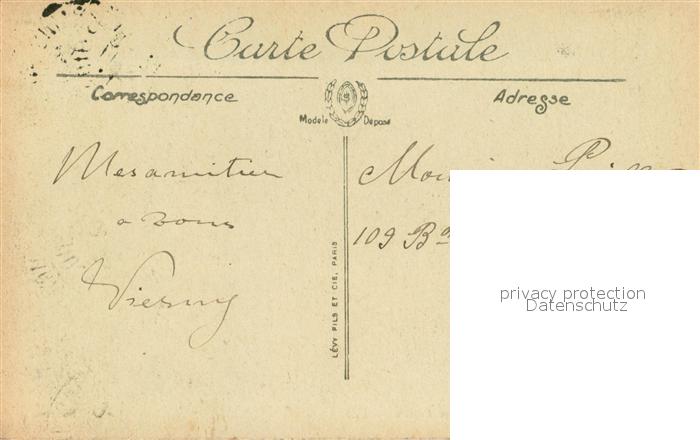 Carte Postale
Correspondance
Adresse
Modèle Déposé
Mes amitiés
a vous
109 Bd
LÉVY FILS ET CIE, PARIS
privacy protection
Datenschutz